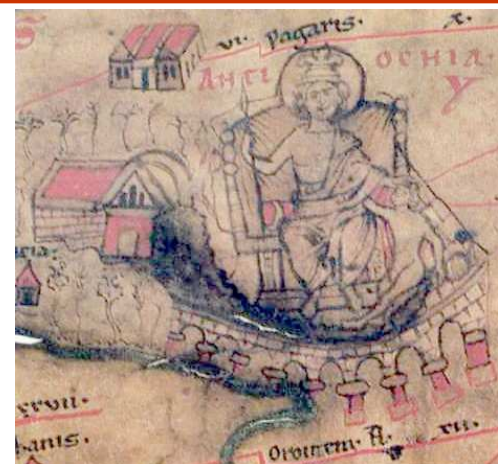 S
vi. pagaris. x.
ANTI OCHIA.
Y
aria.
xxvii.
banis.
Orontem. fl. xii.